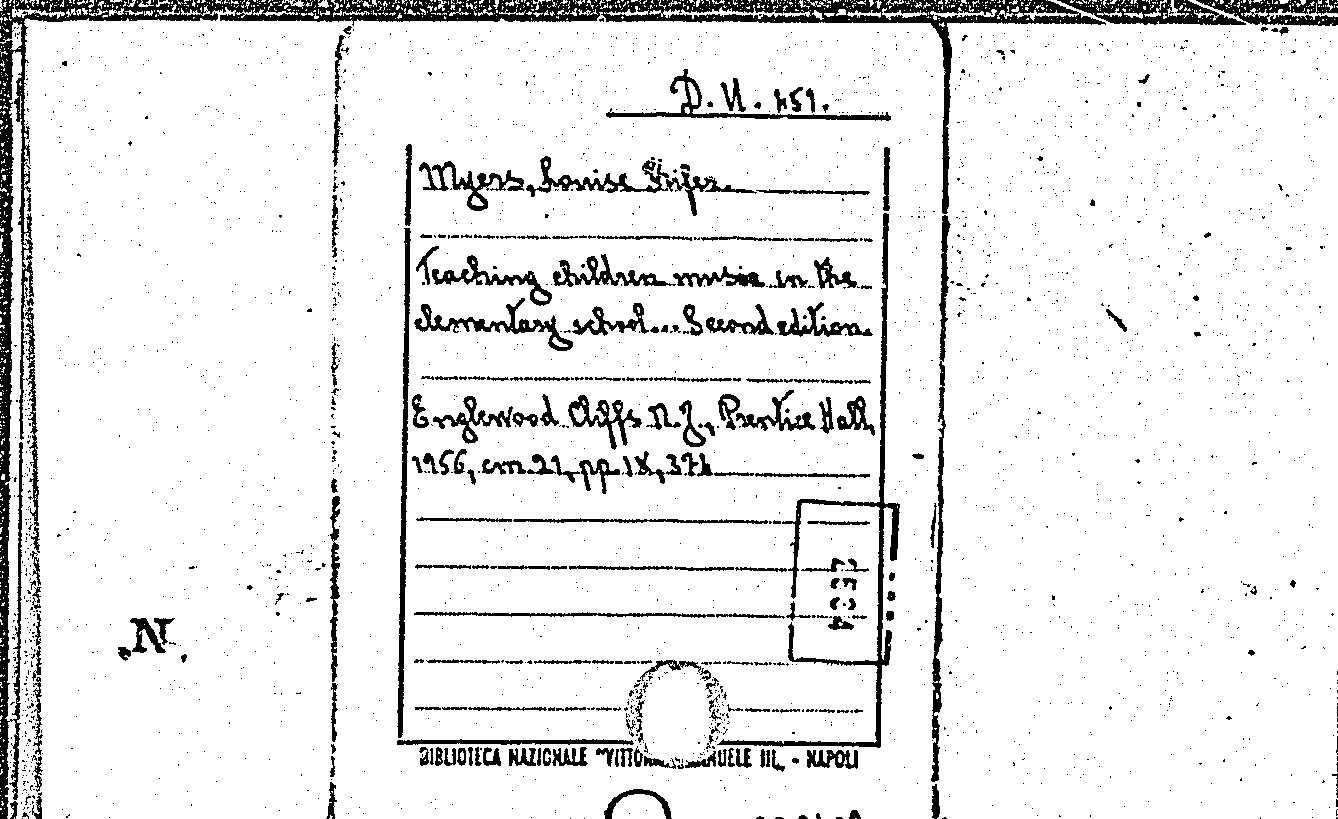 D. U. 451.
Myers, Louise Kifer.
Teaching children music in the
elementary school... Second edition.
Englewood Cliffs N. J., Prentice Hall,
1956, cm. 21, pp. IX, 374
N
BIBLIOTECA NAZIONALE "VITTORIO EMANUELE III„ - NAPOLI